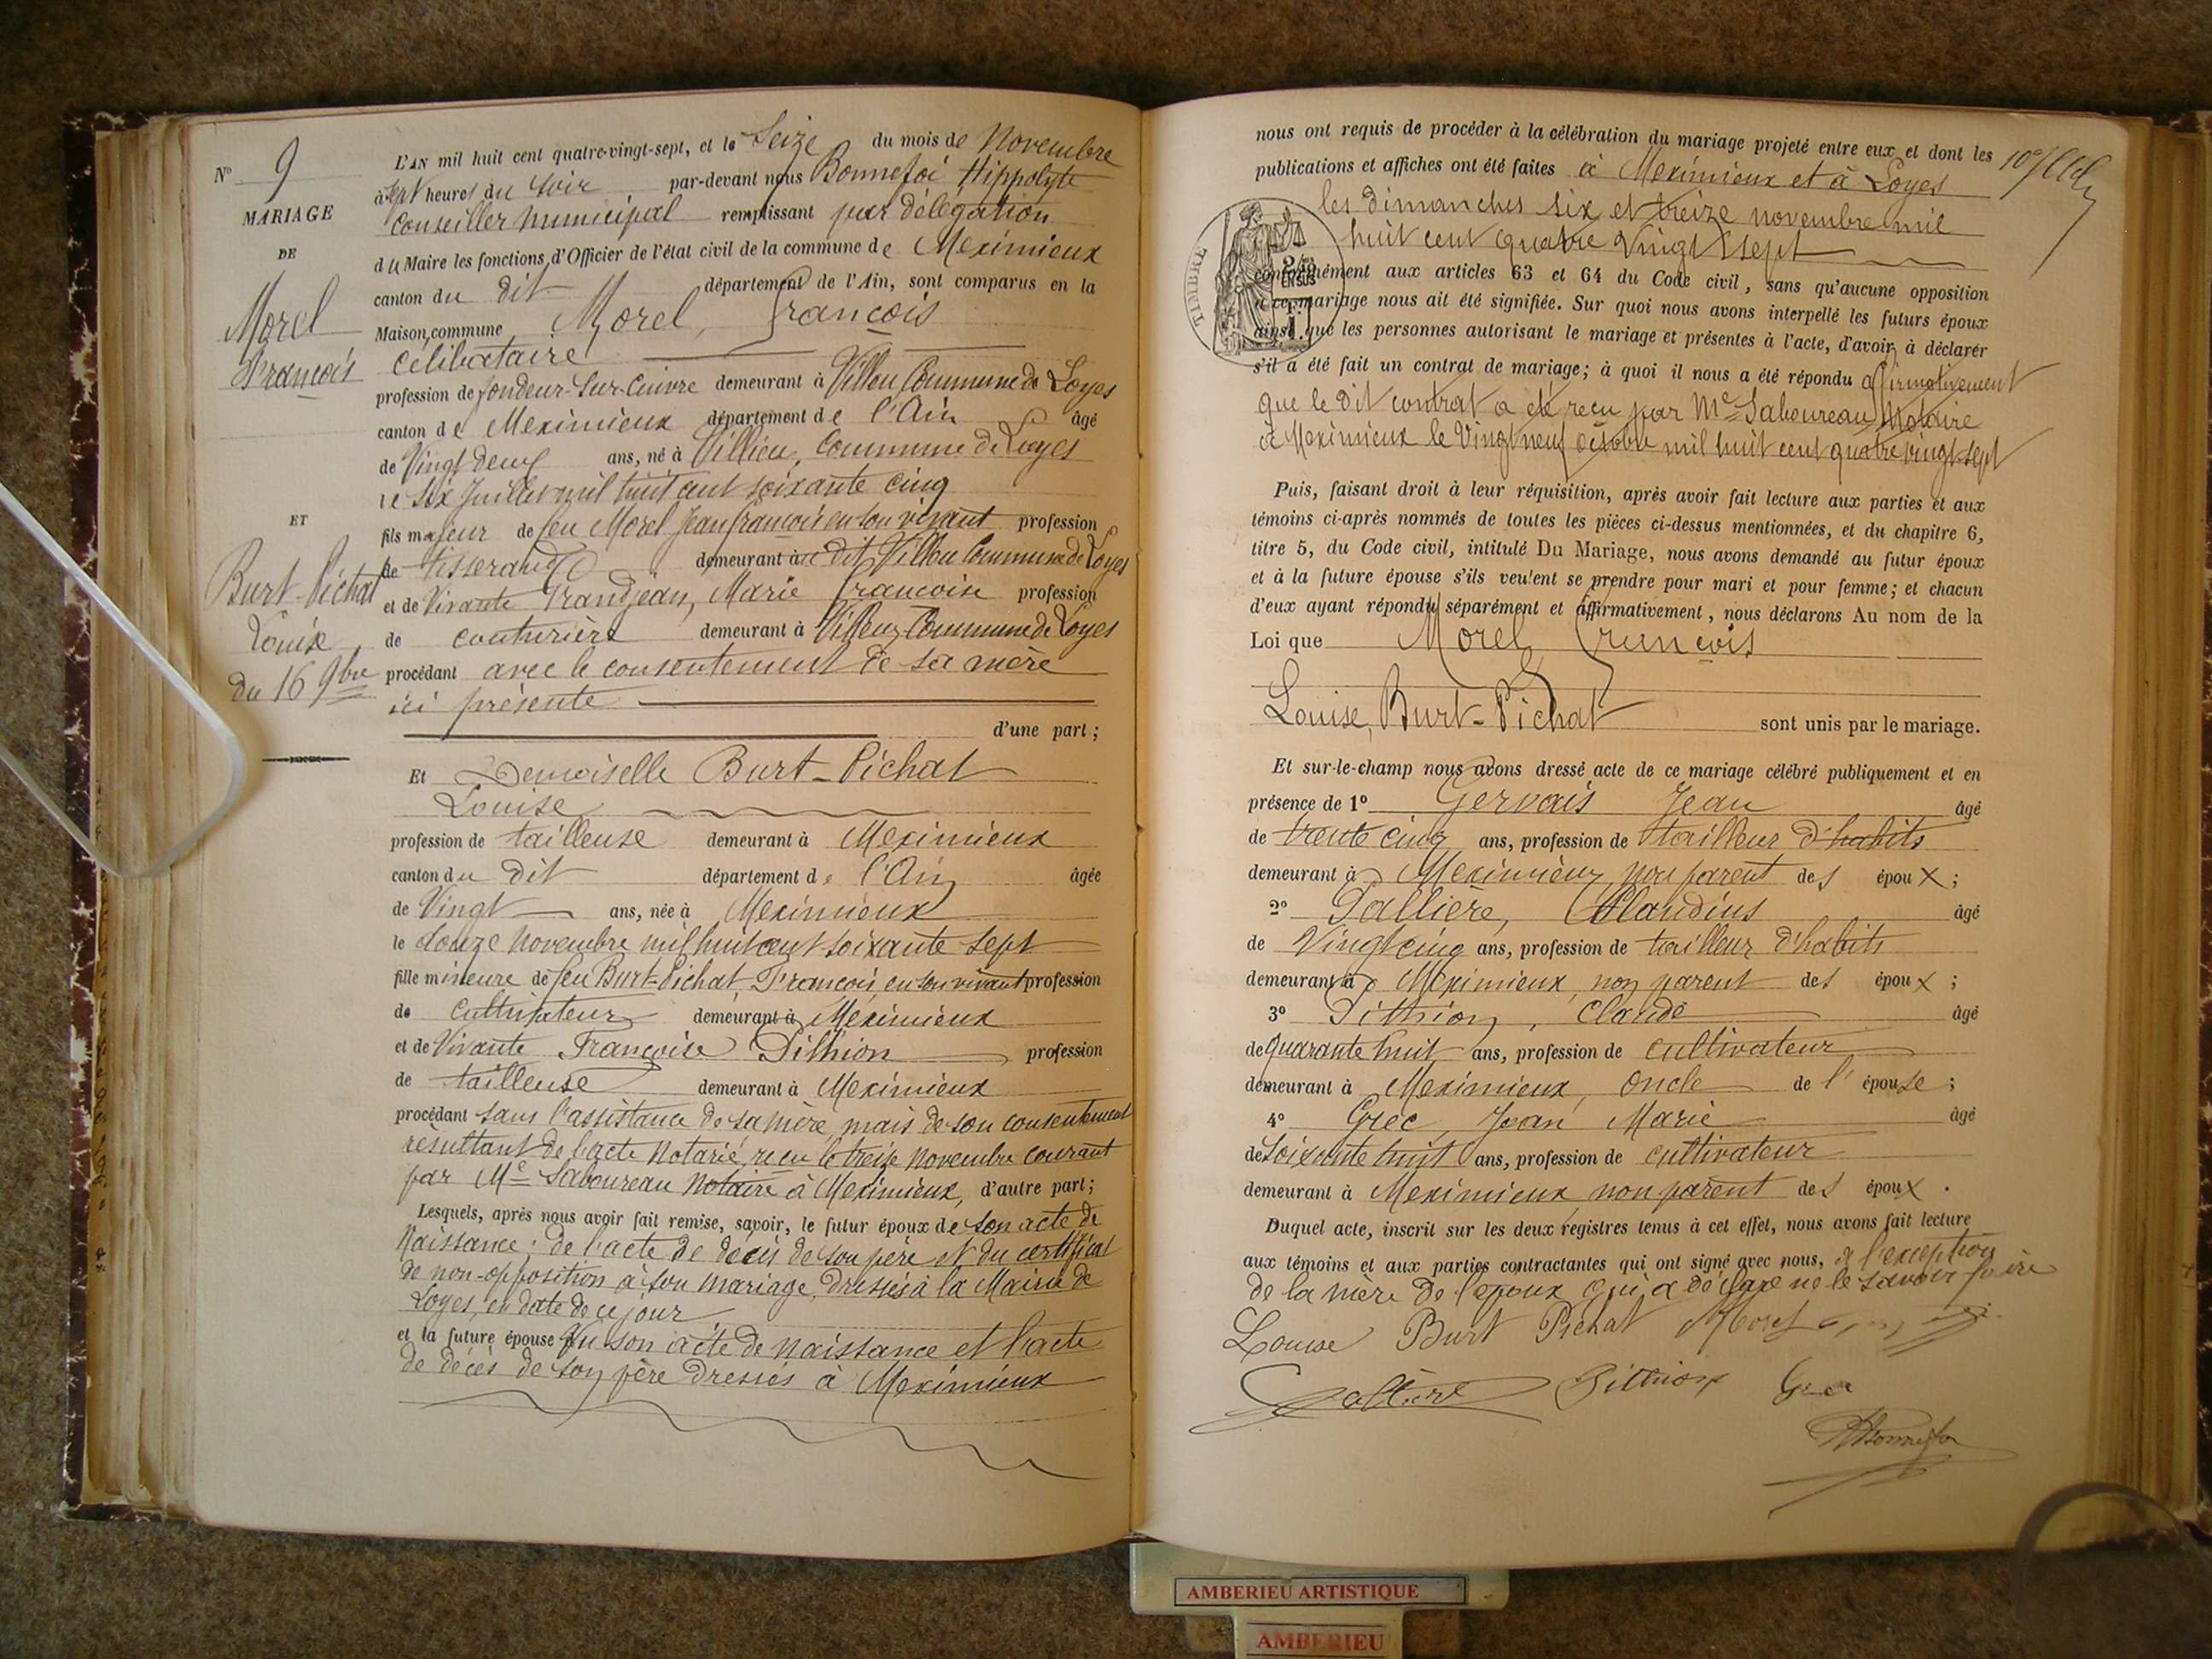 N° 9
MARIAGE
DE
Morel
François
ET
Burt-Pichat
Louise
du 16 9bre
L'AN mil huit cent quatre-vingt-sept, et le Seize du mois de Novembre
à sept heures du soir par-devant nous Bonnefoi Hippolyte
Conseiller municipal remplissant par délégation
du Maire les fonctions d'Officier de l'état civil de la commune de Meximieux
canton du dit département de l'Ain, sont comparus en la
Maison commune Morel, François
célibataire
profession de fondeur-sur-cuivre demeurant à Villieu Commune de Loyes
canton de Meximieux département de l'Ain âgé
de Vingt deux ans, né à Villieu, Commune de Loyes
le six Juillet mil huit cent soixante cinq
fils majeur de feu Morel Jean françois en son vivant profession
de tisserand demeurant au dit Villieu Commune de Loyes
et de Vivante Grandjean, Marie françoise profession
de couturière demeurant à Villieu Commune de Loyes
procédant avec le consentement de sa mère
ici présente
d'une part ;
Et Demoiselle Burt-Pichat
Louise
profession de tailleuse demeurant à Meximieux
canton du dit département de l'Ain âgée
de Vingt ans, née à Meximieux
le douze Novembre mil huit cent soixante sept
fille mineure de feu Burt-Pichat, François, en son vivant profession
de Cultivateur demeurant à Meximieux
et de Vivante Françoise Pithion profession
de tailleuse demeurant à Meximieux
procédant sans l'assistance de sa mère mais de son consentement
résultant de l'acte Notarié, reçu le treize Novembre courant
par Me Saboureau Notaire à Meximieux, d'autre part ;
Lesquels, après nous avoir fait remise, savoir, le futur époux de son acte de
Naissance ; de l'acte de décès de son père et du certificat
de non-opposition à son mariage, dressés à la Mairie de
Loyes, en date de ce jour
et la future épouse de son acte de naissance et l'acte
de décès de son père dressés à Meximieux
nous ont requis de procéder à la célébration du mariage projeté entre eux et dont les
publications et affiches ont été faites à Meximieux et à Loyes
les dimanches six et treize novembre mil
huit cent quatre Vingt sept
TIMBRE
conformément aux articles 63 et 64 du Code civil, sans qu'aucune opposition
à ce mariage nous ait été signifiée. Sur quoi nous avons interpellé les futurs époux
ainsi que les personnes autorisant le mariage et présentes à l'acte, d'avoir à déclarer
s'il a été fait un contrat de mariage ; à quoi il nous a été répondu affirmativement
que le dit contrat a été reçu par Me Saboureau Notaire
à Meximieux le Vingt neuf octobre mil huit cent quatre vingt-sept
Puis, faisant droit à leur réquisition, après avoir fait lecture aux parties et aux
témoins ci-après nommés de toutes les pièces ci-dessus mentionnées, et du chapitre 6,
titre 5, du Code civil, intitulé Du Mariage, nous avons demandé au futur époux
et à la future épouse s'ils veulent se prendre pour mari et pour femme ; et chacun
d'eux ayant répondu séparément et affirmativement, nous déclarons Au nom de la
Loi que Morel François
Louise, Burt-Pichat sont unis par le mariage.
Et sur-le-champ nous avons dressé acte de ce mariage célébré publiquement et en
présence de 1° Gervais Jean âgé
de trente cinq ans, profession de tailleur d'habits
demeurant à Meximieux, non parent des époux ;
2° Pallière, Claudius âgé
de Vingt cinq ans, profession de tailleur d'habits
demeurant à Meximieux, non parent des époux ;
3° Pithion, Claude âgé
de quarante huit ans, profession de cultivateur
demeurant à Meximieux, oncle de l'épouse ;
4° Grec, Jean Marie âgé
de Soixante huit ans, profession de cultivateur
demeurant à Meximieux, non parent des époux .
Duquel acte, inscrit sur les deux registres tenus à cet effet, nous avons fait lecture
aux témoins et aux parties contractantes qui ont signé avec nous, à l'exception
de la mère de l'époux qui a déclaré ne le savoir faire
Louise Burt Pichat Morel
Pallière Pithion Grec
Bonnefoi
AMBERIEU ARTISTIQUE
AMBERIEU